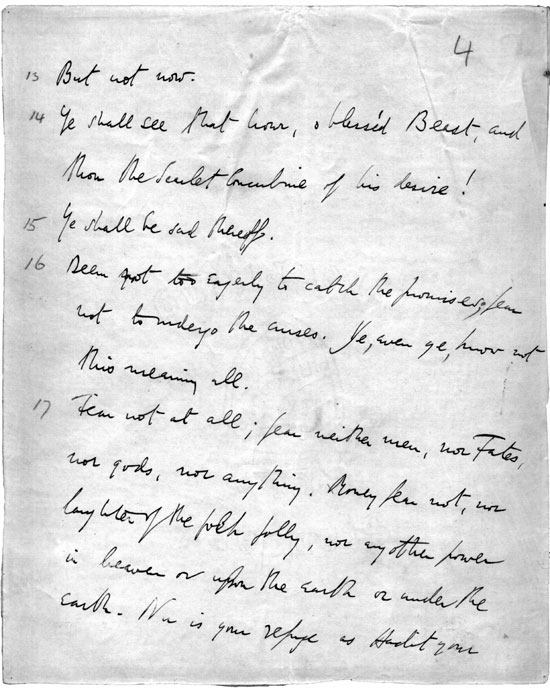 4
13 But not now.
14 Ye shall see that hour, o blessèd Beast, and
thou the Scarlet Concubine of his desire!
15 Ye shall be sad thereof.
16 Deem not too eagerly to catch the promises; fear
not to undergo the curses. Ye, even ye, know not
this meaning all.
17 Fear not at all; fear neither men, nor Fates,
nor gods, nor anything. Money fear not, nor
laughter of the folk folly, nor any other power
in heaven or upon the earth or under the
earth. Nu is your refuge as Hadit your